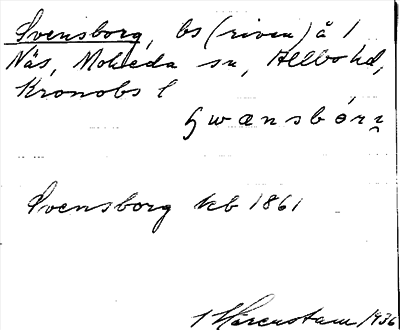 Svensborg, bs (riven) å 1
Näs, Moheda sn, Allbo hd,
Kronobs l
Svensborg kb 1861
Hårenstam 1936